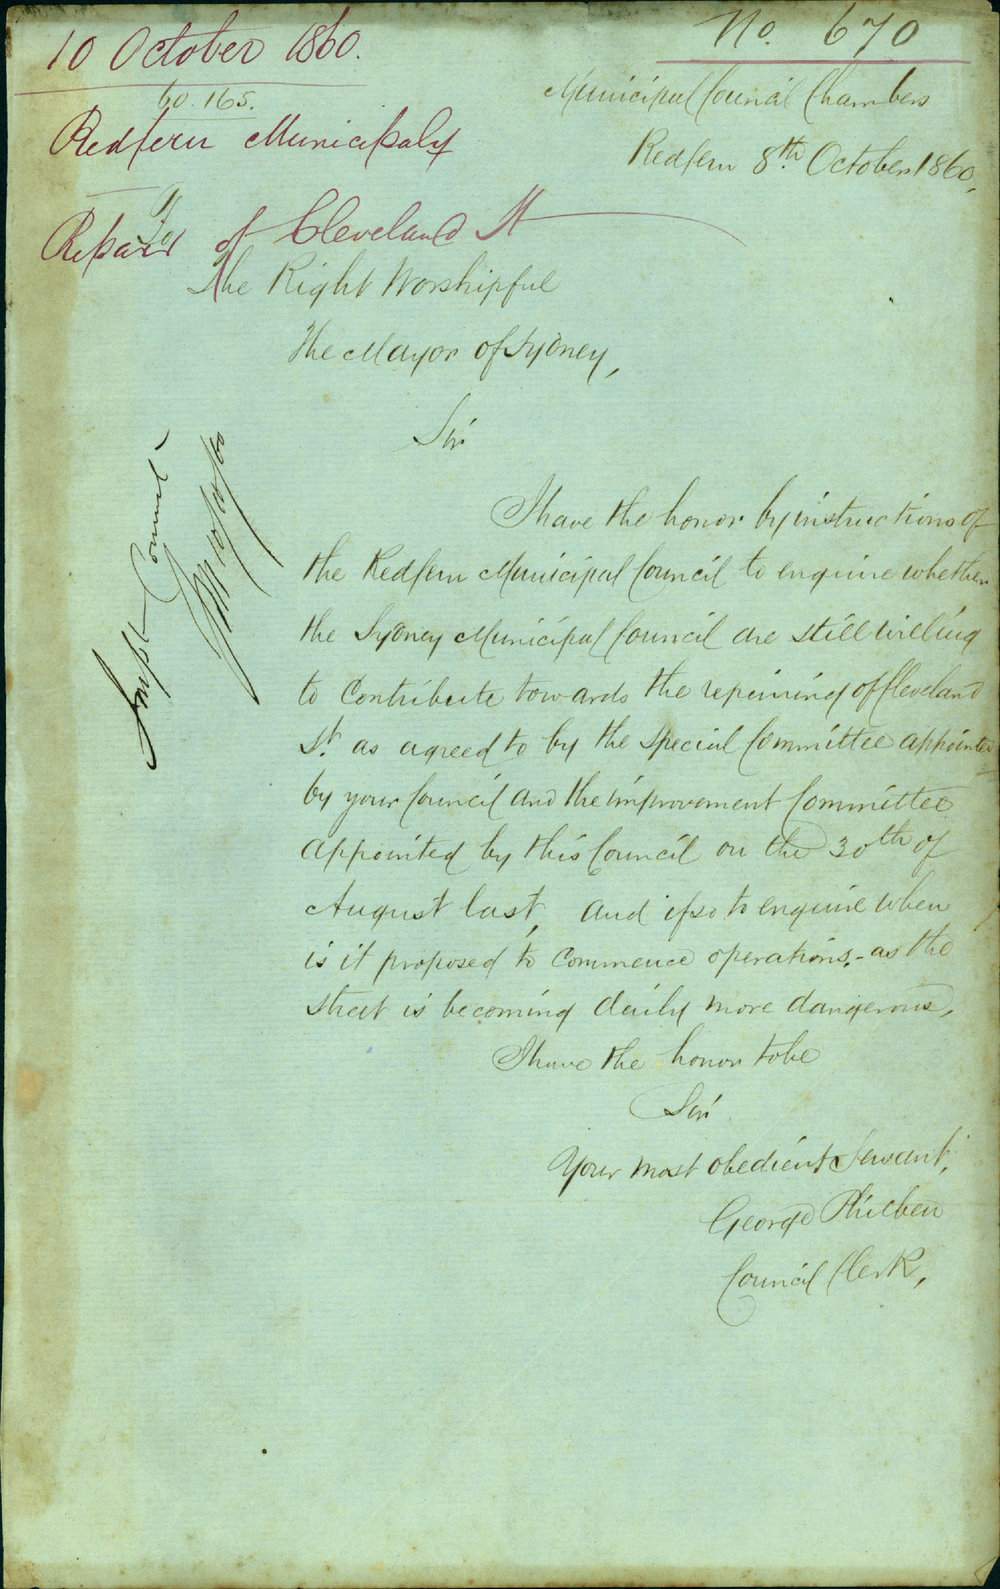 10 October 1860.
No. 670
60.165.
Municipal Council Chambers
Redfern Municipaly
Redfern 8th October 1860,
To
Repair of Cleveland St
The Right Worshipful
The Mayor of Sydney,
Sir
I have the honor by instructions of
the Redfern Municipal Council to enquire whether
the Sydney Municipal Council are still willing
to Contribute towards the repairing of Cleveland
St. as agreed to by the Special Committee appointed
by your Council and the improvement Committee
appointed by this Council on the 30th of
August last, and if so to enquire when
is it proposed to Commence operations.- as the
street is becoming daily more dangerous,
I have the honor to be
Sir
Your most obedient Servant,
George
Council Clerk,
Impt Commt
10/10/60